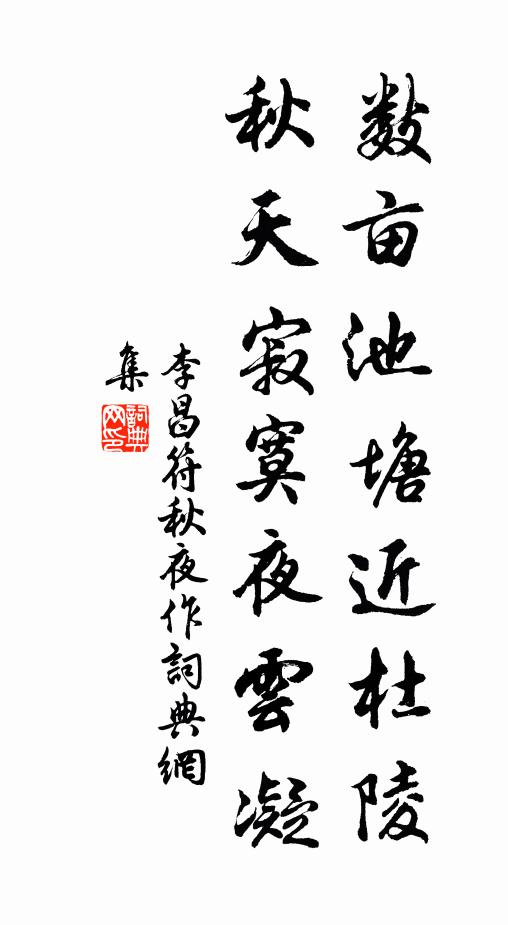 数亩池塘近杜陵
秋天寂寞夜雲凝
李昌符秋夜作詞典網
集
詞典
网印